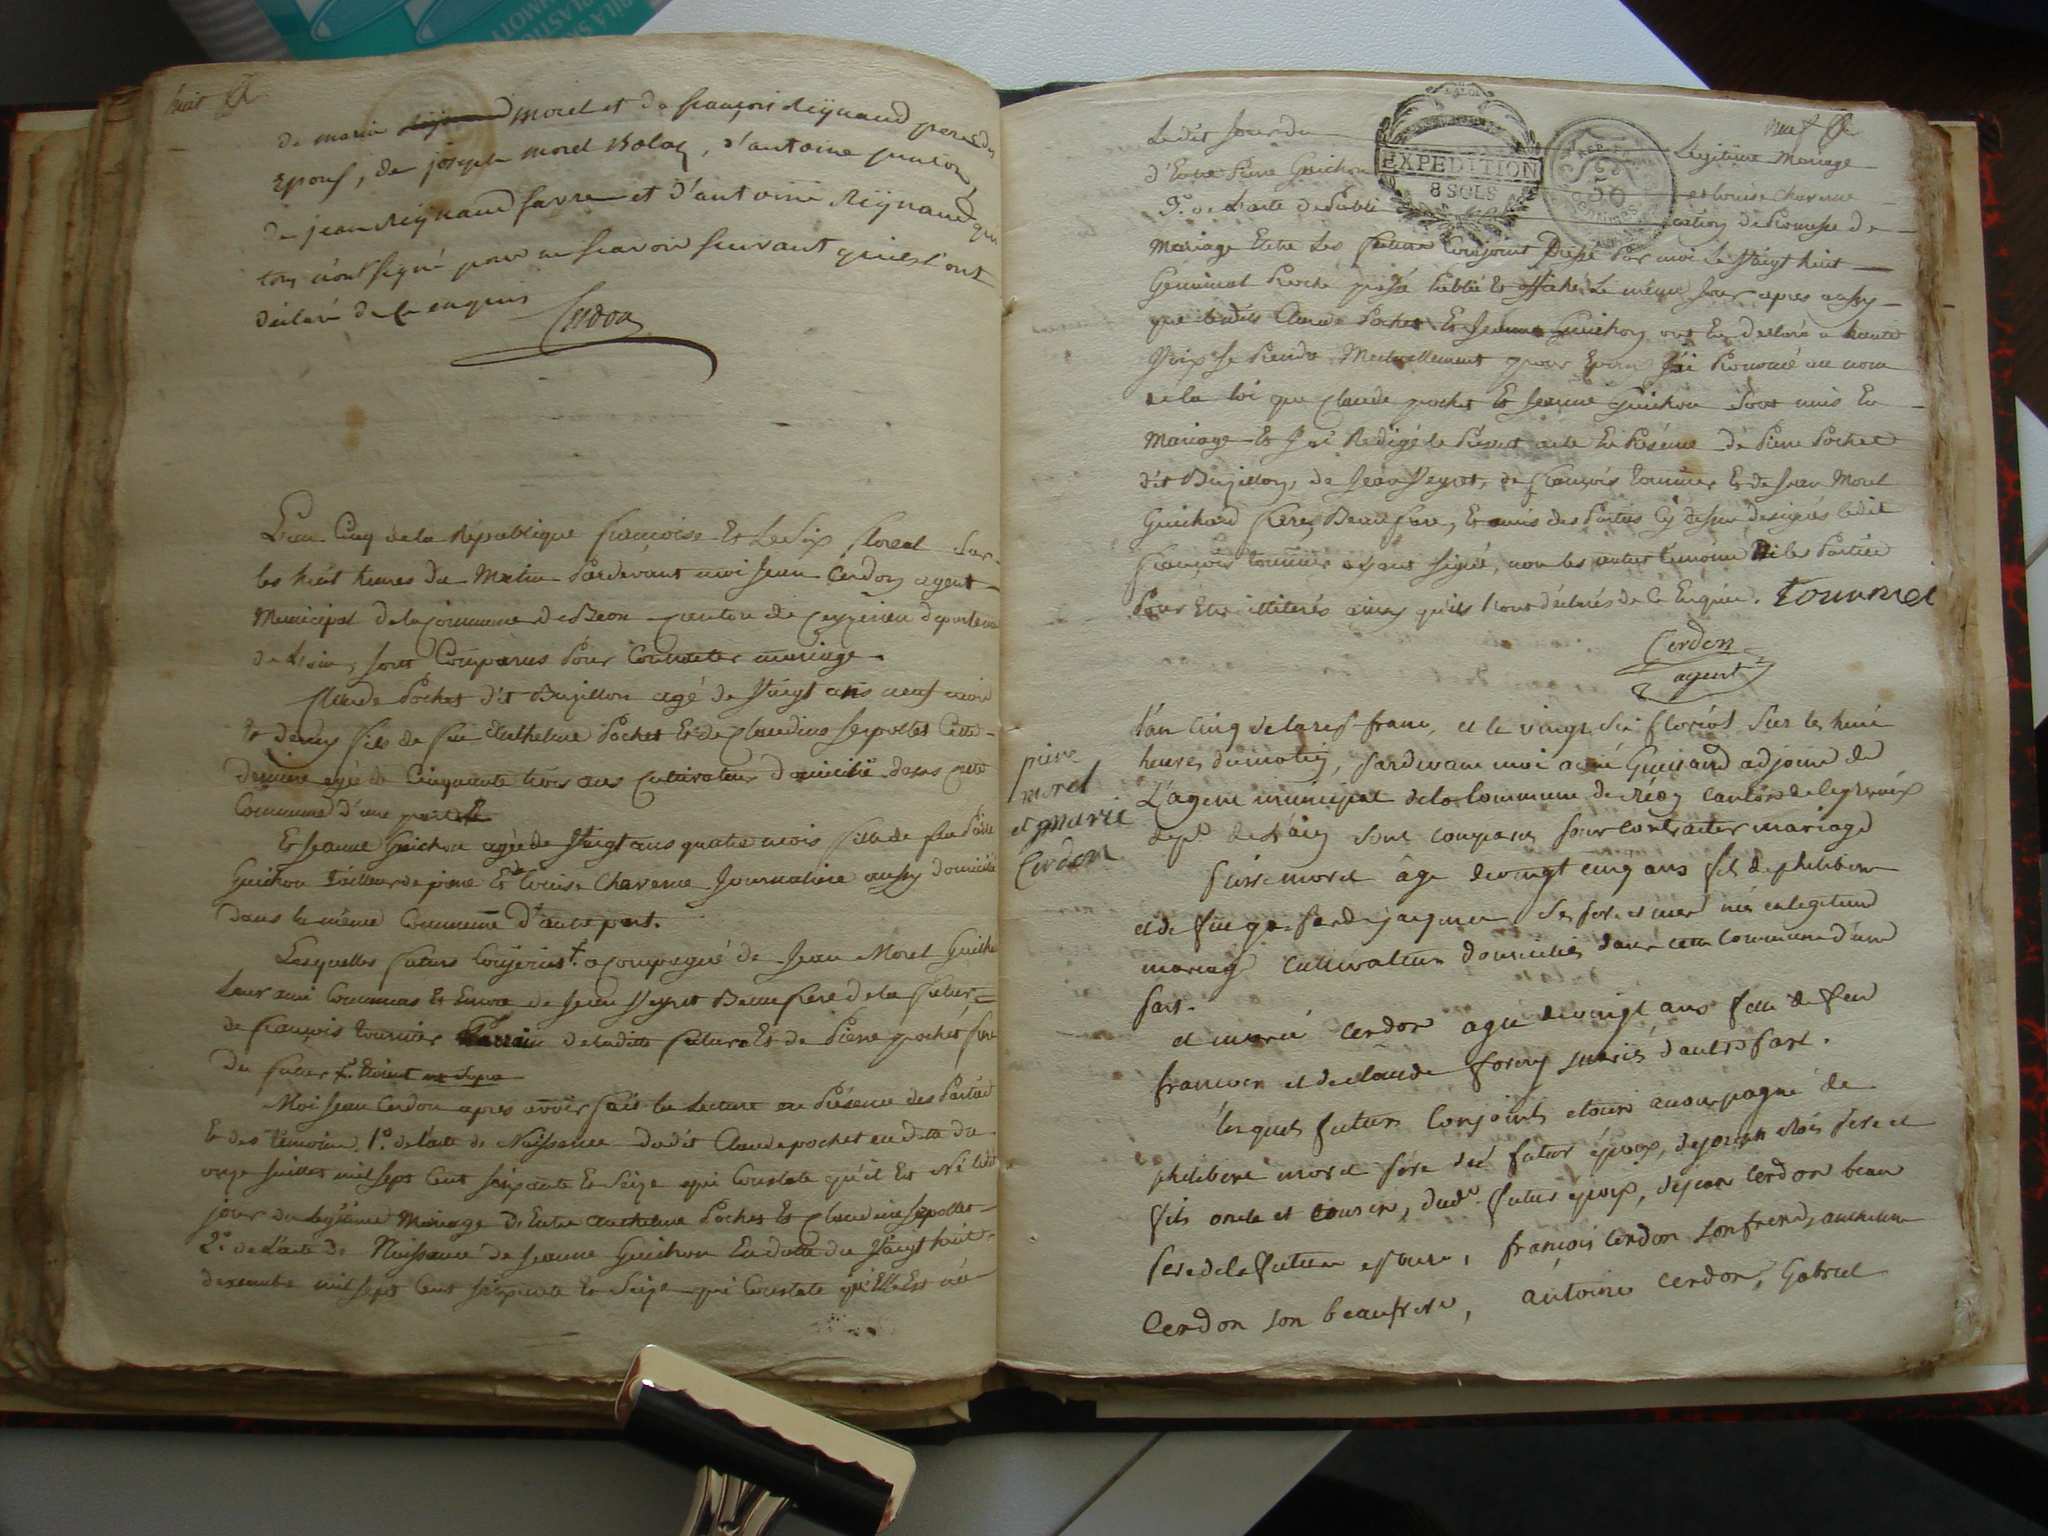 huit
de marin morel et de françois Reÿnaud peres des
Epous, de joseph morel Bolay, d'antoine
de jean Reÿnaud favre et d'antoine Reÿnaud qui
tous n'ont signé pour ne scavoir suivant qu'ils l'ont
déclaré de ce enquis
Cerdon
L'an Cinq de la Republique françoise Et Le Six floreal Sur
les huit heures du Matin Pardevant moi Jean Cerdon agent
Municipal de la Commune de Beon Canton de Ceyzerieu departement
de L'ain, sont Comparus Pour Contracter mariage.
Claude Pochet dit Bugillon agé de Vingt ans neuf mois
et demy fils de feu Anthelme Pochet Et de Claudine Cette
derniere agée de Cinquante trois ans Cultivateur domicilié dans cette
Commune d'une part
Et Jeanne Guichon agée de Vingt ans quatre mois fille de feu
Guichon Tailleur de pierre Et de Louise Charenne Journaliere aussy domicilié
dans la même Commune D'autre part.
Lesquelles futurs Conjoints acompagné de Jean Morel
Leur ami Commun Et Encore de Jean Veyret Beau frere de la future
de François tournier de laditte future Et de Pierre pochet frere
du futur
Moi Jean Cerdon apres avoir fait la Lecture en Présence des Parties
Et des témoins 1.º de l'acte de Naissance dudit Claude pochet en datte du
onze juillet mil sept Cent soixante Et Seize qui Constate qu'il Est Né ledit
jour du Legitime Mariage D'Entre anthelme Pochet Et Claudine
2.º de L'acte de Naissance de Jeanne Guichon En datte du Vingt huit
decembre mil sept Cent soixante Et Seize qui Constate qu'Elle Est née
neuf
Ledit Jour du Légitime Mariage
d'Entre Pierre Guichon et Louise Charenne
EXPEDITION
8 SOLS
50
3.º de L'acte de Publication de Promesse de
Mariage Entre Les futurs Conjoints Dressé Par moi Le Vingt huit
Germinal Proche passé Publié Et affiché Le même Jour apres aussy
que lesdits Claude Pochet Et Jeanne Guichon ont Eu declaré a haute
Voix Se Prendre Mutuellement pour Epoux J'ai Prononcé au nom
de la Loi que Claude pochet Et Jeanne Guichon Sont unis En
Mariage Et J'ai Redigé le Present acte En Présence de Pierre Pochet
dit Bugillon, de Jean Veyret, de François tournier Et de Jean Morel
Guichard frere, Beau frere, Et amis des Parties Cy dessus designés ledit
François tournier ayant signé, non les autres témoins Ni les Parties
Pour Etre illiterés ainsy qu'ils l'ont déclarés de Ce Enquis. tournier
Cerdon
agent
pierre
morel
et marie
Cerdon
l'an Cinq de la rep franc, et le vingt six floréol Sur les huit
heures du matin, Pardevant moi aimé Guinand adjoint de
L'agent municipal de la Commune de Beon Canton de
dep.t de L'ain sont comparus pour contracter mariage
Pierre morel âgé de vingt cinq ans fils de philibert
et de jaquemier Ses père et mere né en légitime
mariage cultivateur domicilié dans cette Commune d'une
part.
et marie Cerdon agée de vingt ans fille de feu
françois et de claude mariés d'autre part.
lesquels futurs Conjoints étoient accompagné de
philibert morel père du futur époux, de joseph père et
fils oncle et cousin, dud.t futur époux, de jean Cerdon beau
père de la future epouse, françois Cerdon son frere, anthelme
Cerdon son beaufrere, antoine Cerdon, Gabriel